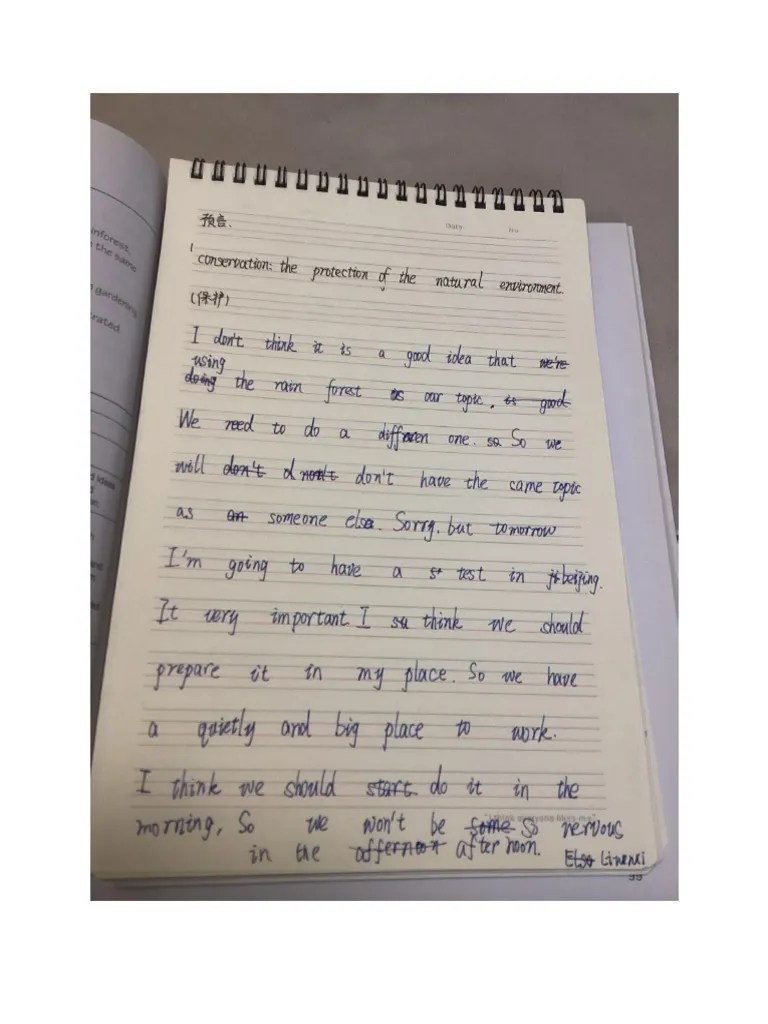 预告.
Date. No.
conservation: the protection of the natural environment
(保护)
I don't think it is a good idea that we're
using
doing the rain forest as our topic, is good
We need to do a differen one. so So we
will don't don't have the came topic
as an someone else. Sorry, but tomorrow
I'm going to have a st test in beijing.
It very important I su think we should
prepare it in my place. So we have
a quietly and big place to work.
I think we should start do it in the
morning, So we won't be some so nervous
in the afternoon afternoon. Elsa
inforest,
n the same
gardening
rated.
d ideas
and
99